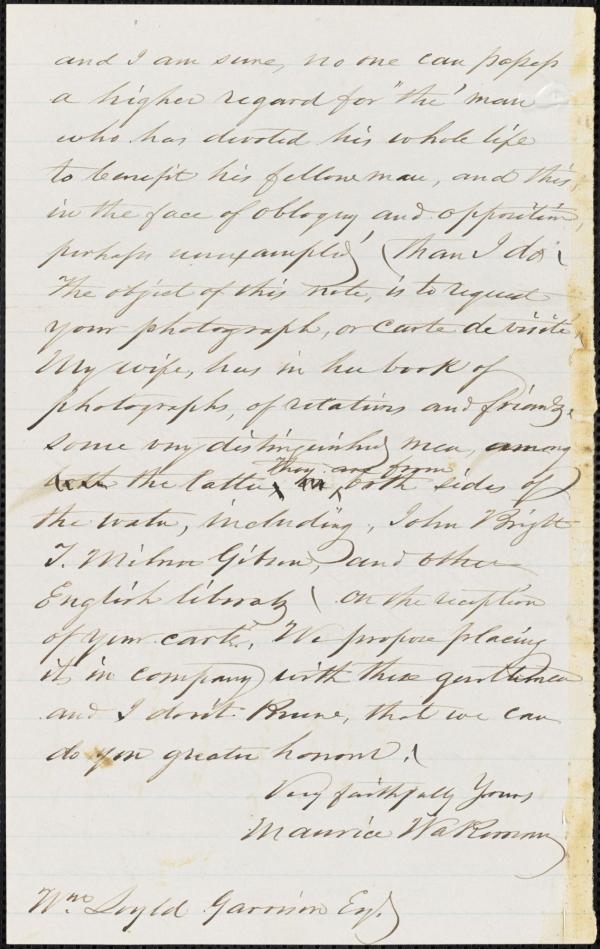 and I am sure, no one can possess
a higher regard for "the" man
who has devoted his whole life
to benefit his fellow man, and this,
in the face of obloquy, and opposition,
perhaps unexampled, than I do.
The object of this note, is to request
your photograph, or carte de visite
My wife, has in her book of
photographs, of relations and friends,
some very distinguished men, among
the latter, They are from both sides of
the water, including, John Bright
T. Milnor Gibson, and other
English liberals. On the reception
of your carte, We propose placing
it, in company with these gentlemen
and I don't know, that we can
do you greater honour.
Very faithfully Yours
Maurice Wakeman
Wm Loyld Garrison Esq.